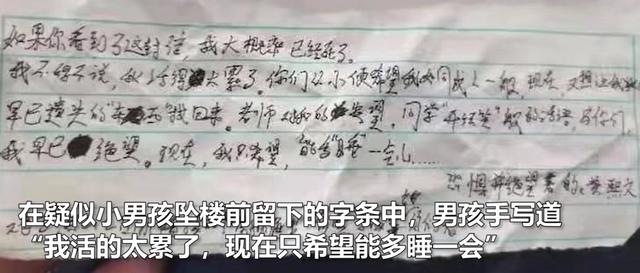 如果你看到了这封信，我大概率已经死了。
我不得不说，我活得太累了。你们从小便希望我如同成人一般，现在又想让我把
早已遗失的“东西”找回来。老师的失望，同学“开玩笑”般的话语，
我早已绝望。现在，我只希望，能多“睡”一会儿……
恐惧并绝望着的
在疑似小男孩坠楼前留下的字条中，男孩手写道
“我活的太累了，现在只希望能多睡一会”